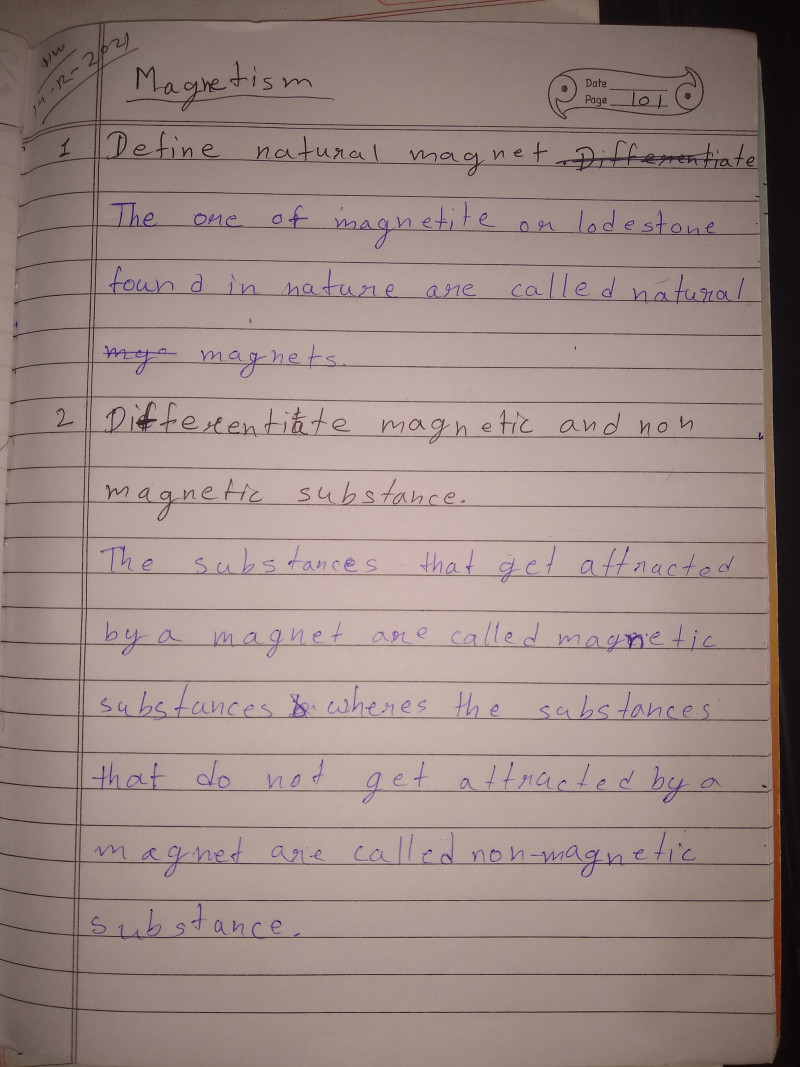 HW
14-12-2021
Magnetism
Date
Page 101
1 Define natural magnet. Differentiate
The ore of magnetite or lodestone
found in nature are called natural
mgo magnets.
2 Differentiate magnetic and non
magnetic substance.
The substances that get attracted
by a magnet are called magnetic
substances wheres the substances
that do not get attracted by a
magnet are called non-magnetic
substance.